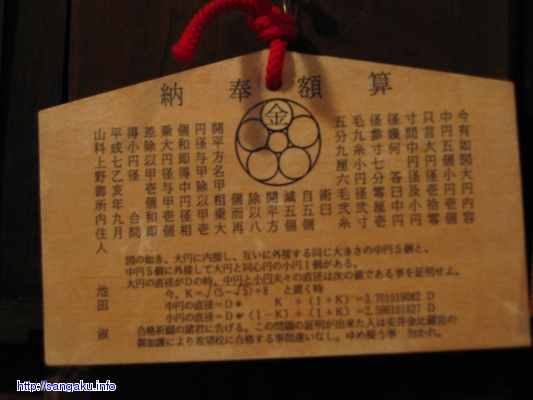 算額奉納
金
今有如図大円内容
中円五個小円壱個
只言大円径拾零
寸間中円径及小円
径幾何 答曰中円
径参寸七分零厘壱
毛九糸小円径弐寸
五分九厘六毛弐糸
術曰
自五個
減五個
開平方
除以八
個而再
開平方名甲相乗大
円径与甲除以甲壱
個和即得中円径相
乗大円径与甲壱個
差除以甲壱個和即
得小円径 合問
平成七乙亥年九月
山科上野御所内住人
池田 淑
図の如き、大円に内接し、互いに外接する同じ大きさの中円5個と、
中円5個に外接して大円と同心円の小円1個がある。
大円の直径がDの時、中円と小円夫々の直径は次の値である事を証明せよ。
今、K=√(5-√5)÷8 と置く時
中円の直径=D* K ÷(1+K)=3.701919082 D
小円の直径=D*(1-K)÷(1+K)=2.596161837 D
合格祈願の諸君に告げる。この問題の証明が出来た人は安井金比羅宮の
御加護により志望校に合格する事間違いなし。ゆめ疑う事 勿かれ。
http://sangaku.info